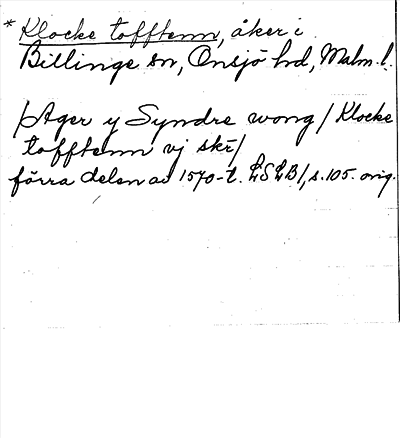 * Klocke tofftenn, åker i
Billinge sn, Onsjö hd, Malm. l.
/Ager y Syndre wong/ Klocke
tofftenn vj skr/
förra delen av 1570-t. LSLB/, s. 105. orig.